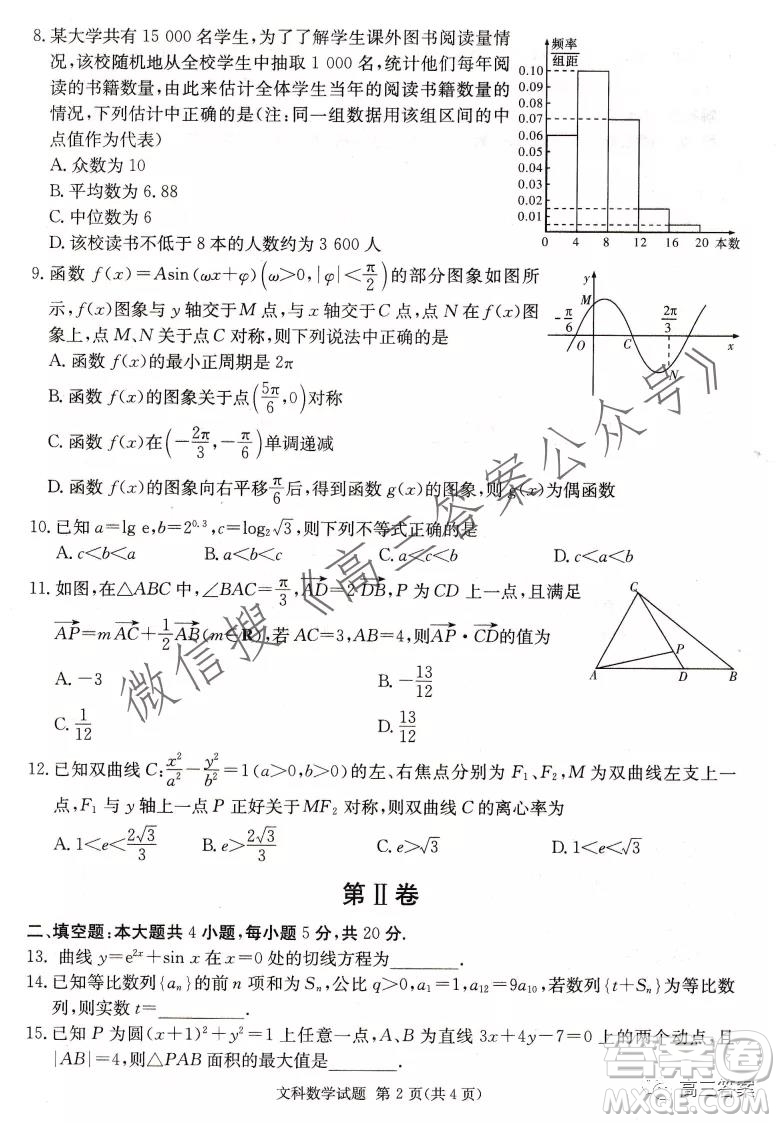 8. 某大学共有 15 000 名学生,为了了解学生课外图书阅读量情
况,该校随机地从全校学生中抽取 1 000 名,统计他们每年阅
读的书籍数量,由此来估计全体学生当年的阅读书籍数量的
情况,下列估计中正确的是(注:同一组数据用该组区间的中
点值作为代表)
A. 众数为 10
B. 平均数为 6.88
C. 中位数为 6
D. 该校读书不低于 8 本的人数约为 3 600 人
频率
组距
0.10
0.09
0.08
0.07
0.06
0.05
0.04
0.03
0.02
0.01
0 4 8 12 16 20 本数
9. 函数 f(x)=Asin(ωx+φ)(ω>0,|φ|<π/2)的部分图象如图所
示,f(x)图象与 y 轴交于 M 点,与 x 轴交于 C 点,点 N 在 f(x)图
象上,点 M、N 关于点 C 对称,则下列说法中正确的是
A. 函数 f(x)的最小正周期是 2π
B. 函数 f(x)的图象关于点(5π/6,0)对称
C. 函数 f(x)在(-2π/3,-π/6)单调递减
D. 函数 f(x)的图象向右平移π/6后,得到函数 g(x)的图象,则 g(x)为偶函数
y
M
-π/6
2π/3
O
C
N
x
10. 已知 a=lg e,b=2^0.3,c=log₂√3,则下列不等式正确的是
A. c<b<a B. b<c<a C. a<c<b D. c<a<b
11. 如图,在△ABC 中,∠BAC=π/3,AD→=2DB→,P 为 CD 上一点,且满足
AP→=mAC→+1/2AB→(m∈R),若 AC=3,AB=4,则AP→·CD→的值为
A. -3 B. -13/12
C. 1/12 D. 13/12
C
P
A D B
12. 已知双曲线 C:x²/a²-y²/b²=1(a>0,b>0)的左、右焦点分别为 F₁、F₂,M 为双曲线左支上一
点,F₁ 与 y 轴上一点 P 正好关于 MF₂ 对称,则双曲线 C 的离心率为
A. 1<e<2√3/3 B. e>2√3/3 C. e>√3 D. 1<e<√3
第Ⅱ卷
二、填空题:本大题共 4 小题,每小题 5 分,共 20 分.
13. 曲线 y=e^2x+sin x 在 x=0 处的切线方程为________.
14. 已知等比数列{aₙ}的前 n 项和为 Sₙ,公比 q>0,a₁=1,a₁₂=9a₁₀,若数列{t+Sₙ}为等比数
列,则实数 t=________.
15. 已知 P 为圆(x+1)²+y²=1 上任意一点,A、B 为直线 3x+4y-7=0 上的两个动点,且
|AB|=4,则△PAB 面积的最大值是________.
文科数学试题 第 2 页(共 4 页)
微信搜《高三答案公众号》
答案圈
高三答案